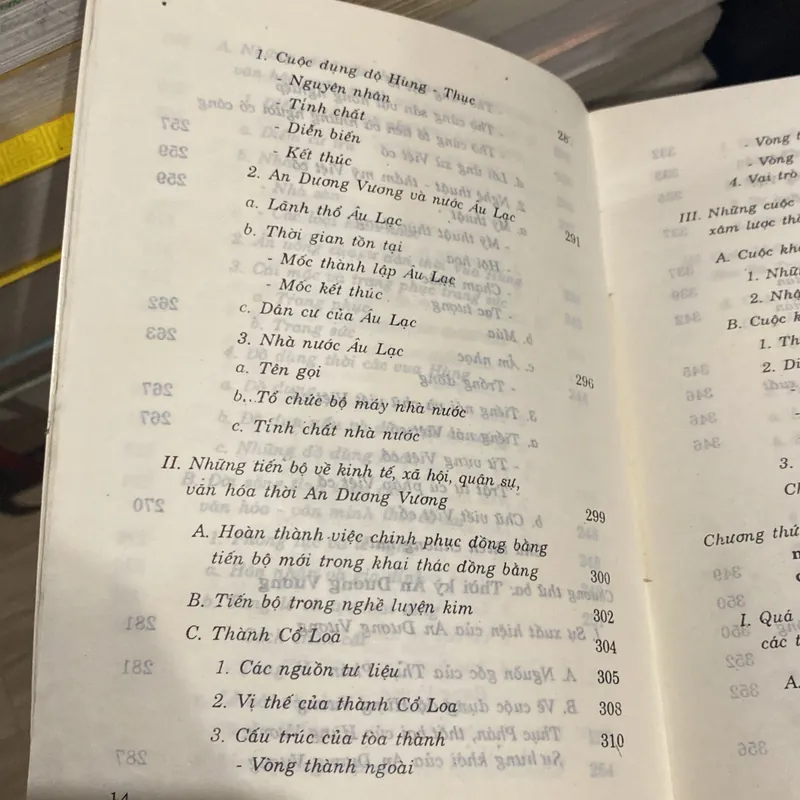 1. Cuộc đụng độ Hùng - Thục
- Nguyên nhân
- Tính chất
- Diễn biến
- Kết thúc
2. An Dương Vương và nước Âu Lạc 291
a. Lãnh thổ Âu Lạc
b. Thời gian tồn tại
- Mốc thành lập Âu Lạc
- Mốc kết thúc
c. Dân cư của Âu Lạc
3. Nhà nước Âu Lạc 296
a. Tên gọi
b. Tổ chức bộ máy nhà nước
c. Tính chất nhà nước
II. Những tiến bộ về kinh tế, xã hội, quân sự,
văn hóa thời An Dương Vương 299
A. Hoàn thành việc chinh phục đồng bằng
tiến bộ mới trong khai thác đồng bằng 300
B. Tiến bộ trong nghề luyện kim 302
C. Thành Cổ Loa 304
1. Các nguồn tư liệu 305
2. Vị thế của thành Cổ Loa 308
3. Cấu trúc của tòa thành 310
- Vòng thành ngoài
14
- Vòng
- Vòng
4. Vai trò
III. Những cuộc
xâm lược
A. Cuộc
1.
2.
B. Cuộc
1.
2.
-
-
3.
Chương thứ
I. Quá
các
A.